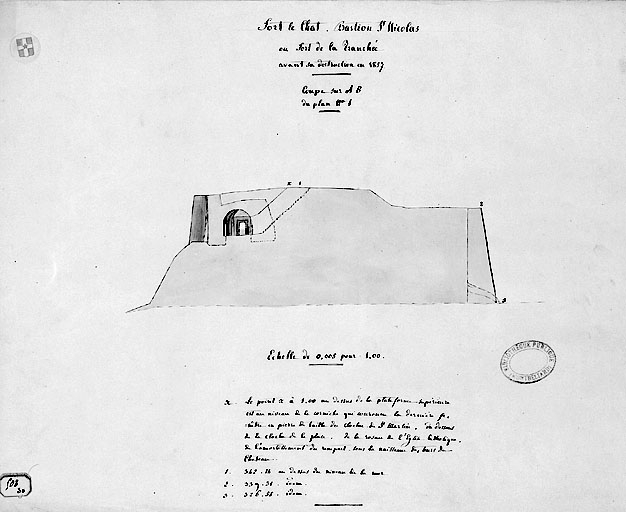 Fort le Chat. Bastion St Nicolas
ou Fort de la Tranchée
avant sa destruction en 1857
Coupe sur A B
du plan No 1
x 1
2
3
Echelle de 0,005 pour 1,00.
x Le point x à 1.00 au dessus de la plateforme supérieure
est au niveau de la corniche qui couronne la dernière fe-
nêtre en pierre de taille du clocher de St Martin, au dessus
de la cloche de la place, de la rosace de l'Eglise
de l'amortissement du rempart sous la naissance des tours du
Château.
1. 342.36 au dessus du niveau de la mer
2. 339.31 idem.
3. 326.31 idem.
BIBLIOTHEQUE PUBLIQUE
503
30